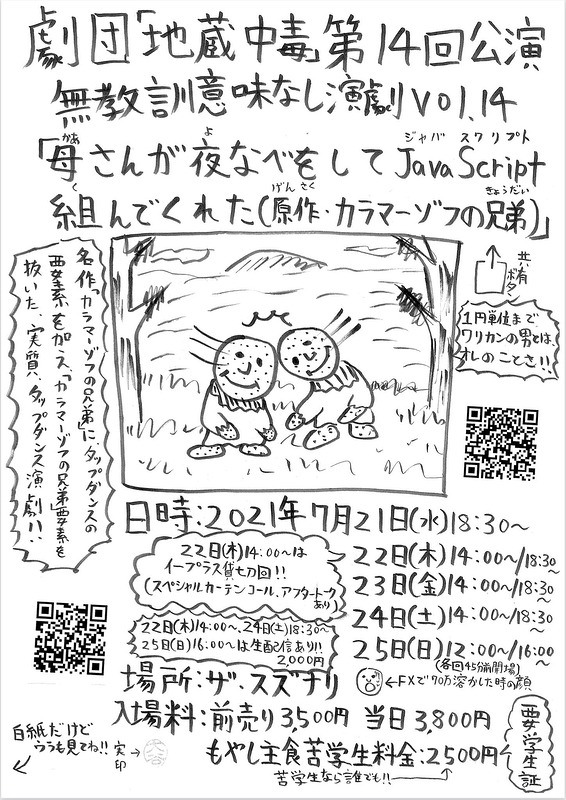 劇団「地蔵中毒」第14回公演
無教訓意味なし演劇vol.14
「母さんが夜なべをしてJavaScript
かあ
よ
ジャバ スクリプト
組んでくれた(原作・カラマーゾフの兄弟)」
く
げんさく
きょうだい
名作「カラマーゾフの兄弟」にタップダンスの
要素を加え、「カラマーゾフの兄弟」要素を
抜いた、実質、タップダンス演劇!!
共有
ボタン
1円単位まで
ワリカンの男とは、
オレのことさ!!
日時:2021年7月21日(水)18:30~
22日(木)14:00~/18:30~
23日(金)14:00~/18:30~
24日(土)14:00~/18:30~
25日(日)12:00~/16:00~
(各回45分前開場)
22日(木)14:00~は
イープラス貸切回!!
(スペシャルカーテンコール、アフタートーク
あり)
22日(木)14:00~、24日(土)18:30~
25日(日)16:00~は生配信あり!!
2,000円
場所:ザ・スズナリ
←FXで70万溶かした時の顔
入場料:前売り3,500円 当日3,800円
もやし主食苦学生料金:2,500円
苦学生なら誰でも!!
要学生証
白紙だけど
ウラも見てね!!
実印→